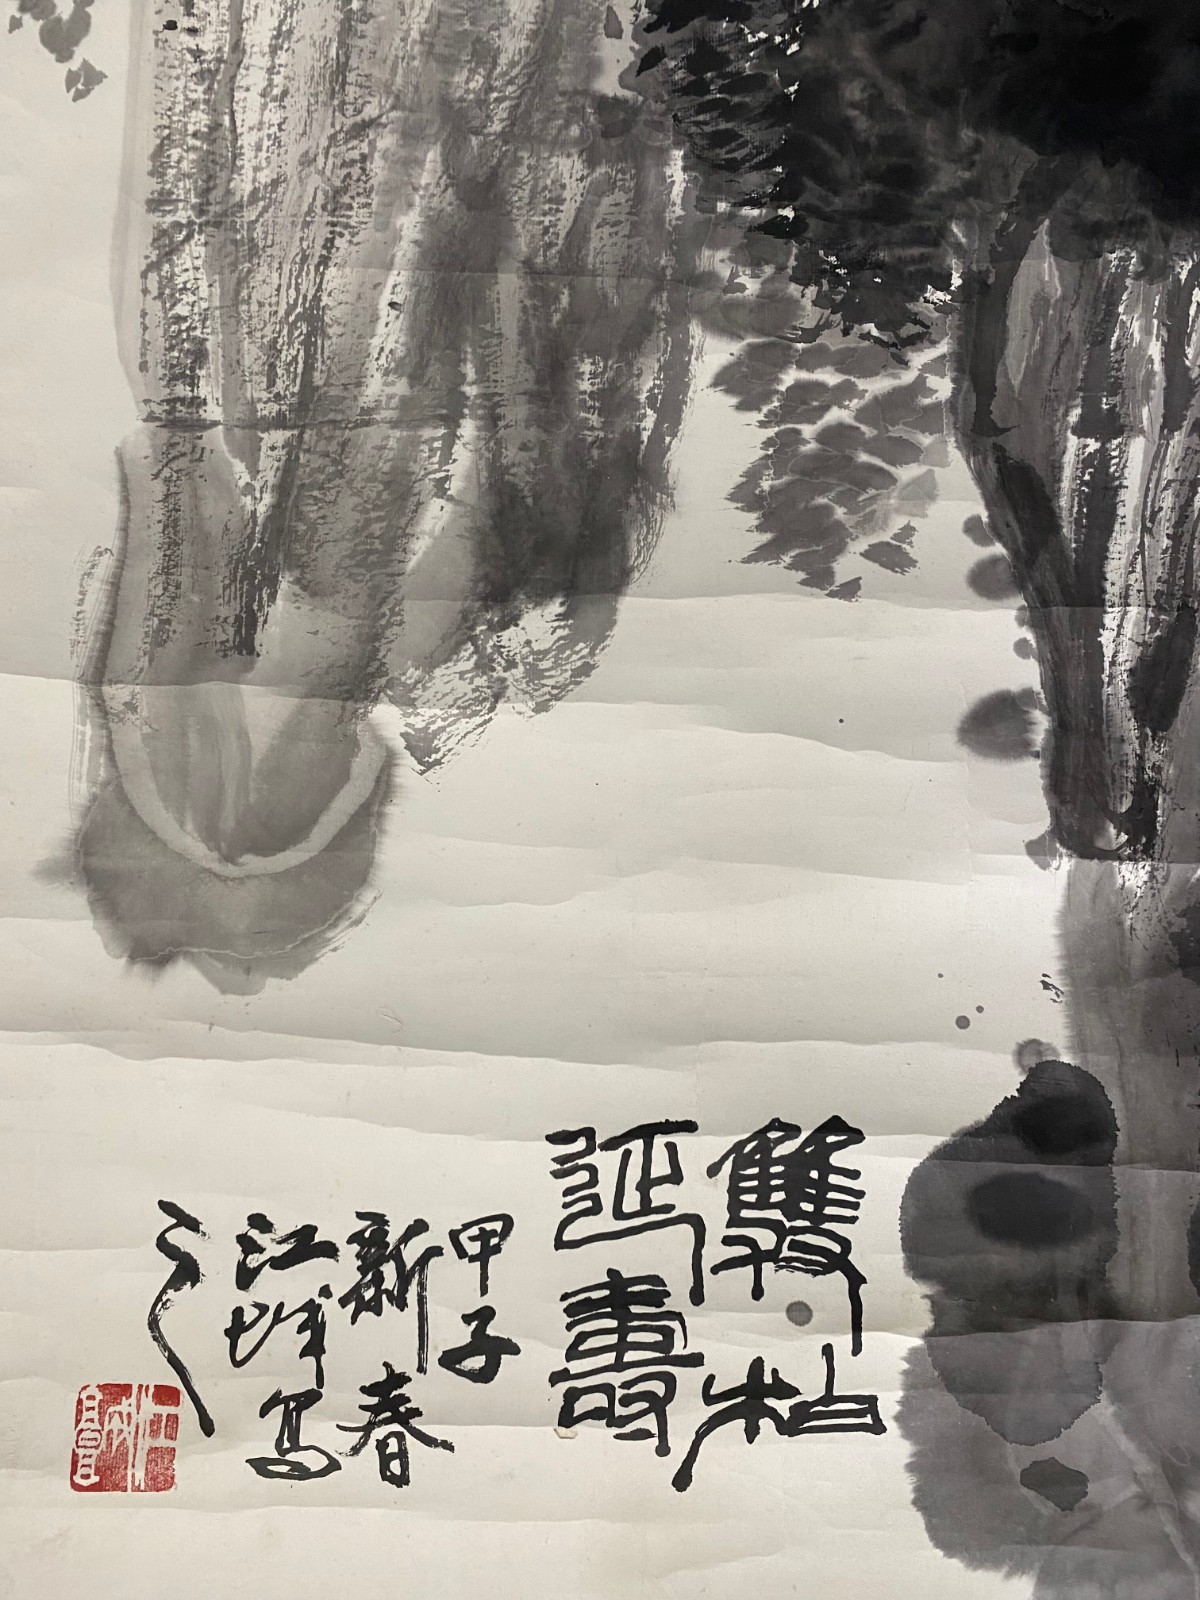 雙柏
延壽
甲子
新春
江城写
之